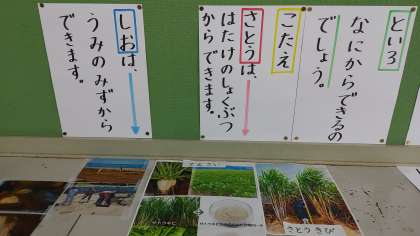 といろ
なにからできるの
でしょう。
こたえ
さとうは、
はたけのしょくぶつ
からできます。
しおは、
うみのみずから
できます。
てんさい
さとうきび